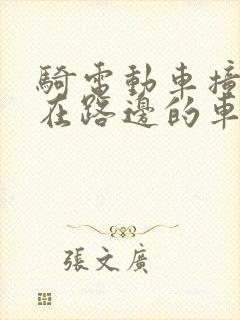 騎電動車撞
在路邊的車
張文廣